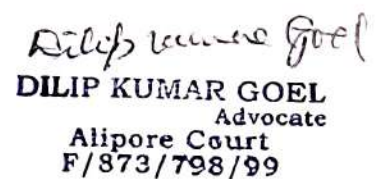 Dilip Kumar Goel
DILIP KUMAR GOEL
Advocate
Alipore Court
F/873/798/99